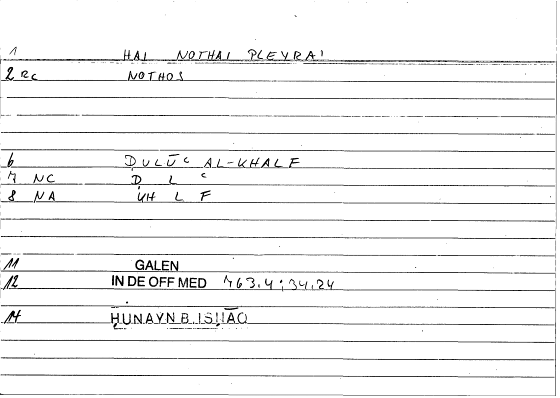 1 HAI NOTHAI PLEYRAI
2 RC NOTHOS
6 ḌULŪC AL-KHALF
7 NC Ḍ L C
8 NA KH L F
11 GALEN
12 IN DE OFF MED 763.4; 34.24
14 ḤUNAYN B. ISḤĀQ